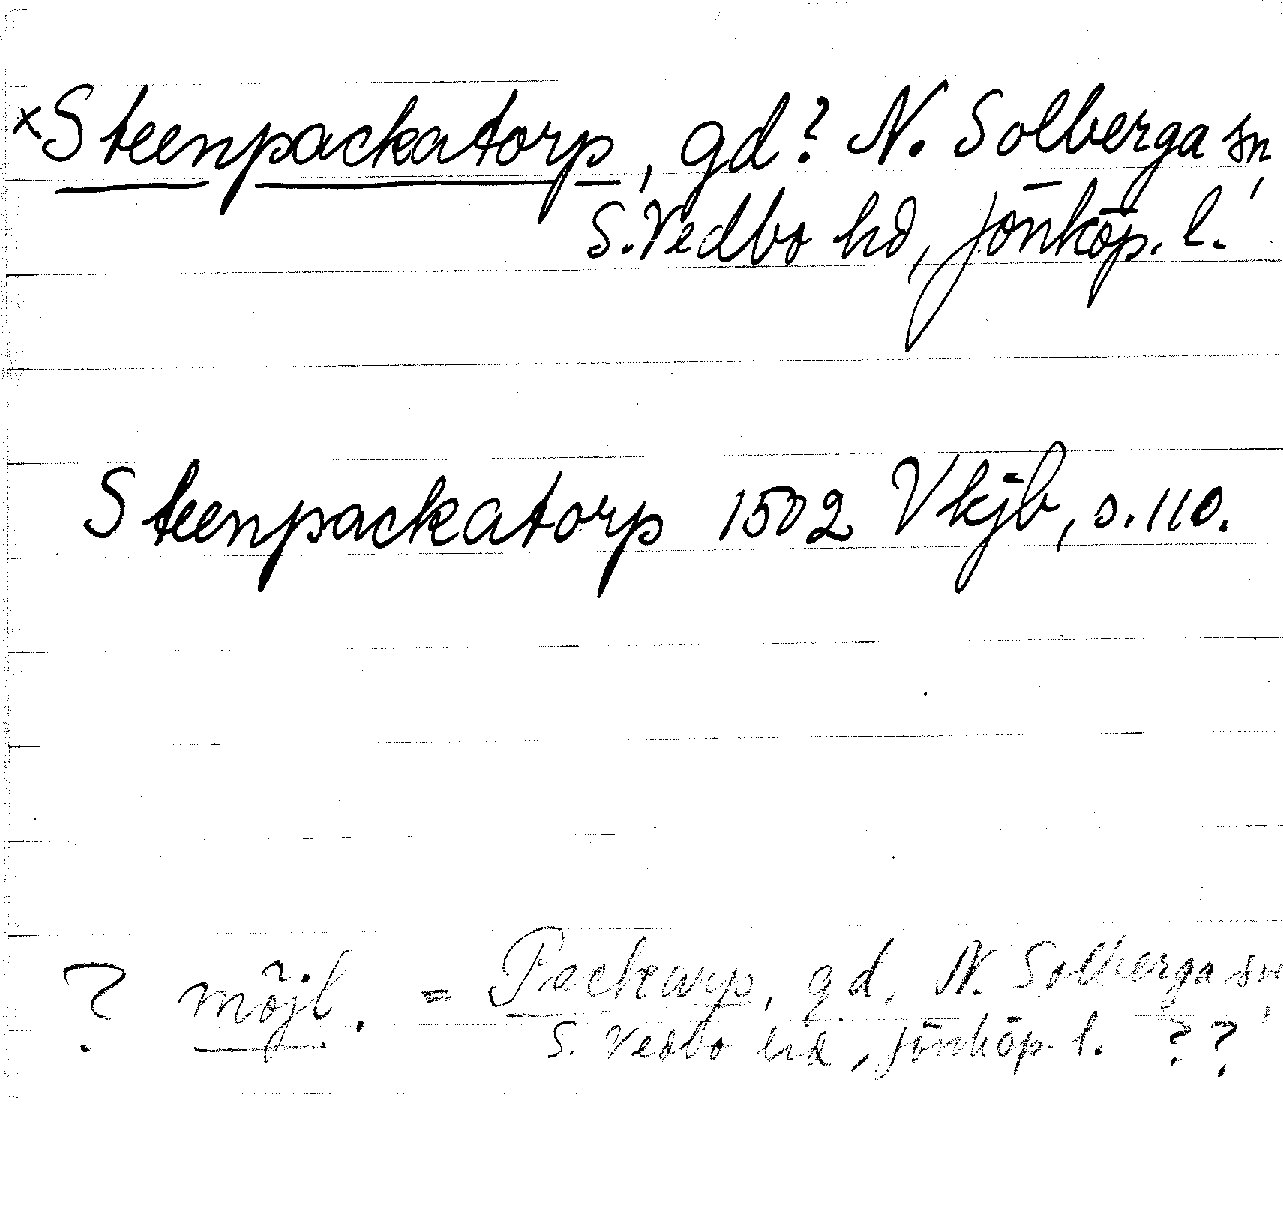 ×Steenpackatorp, gd? N. Solberga sn,
S. Vedbo hd, Jönköp. l.
Steenpackatorp 1502 Vkjb, s. 110.
? möjl. = Packarp, gd, N. Solberga sn,
S. Vedbo hd, Jönköp. l. ??